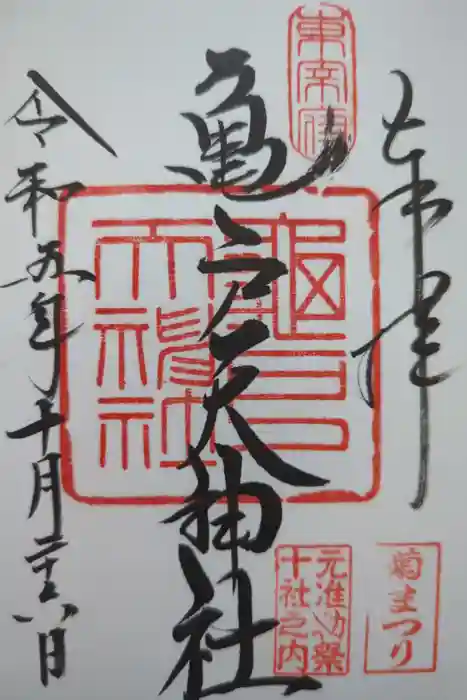 奉拝
東宰府
亀戸天神社
亀戸
天神社
元准勅祭
十社之内
菊まつり
令和五年十月二十八日